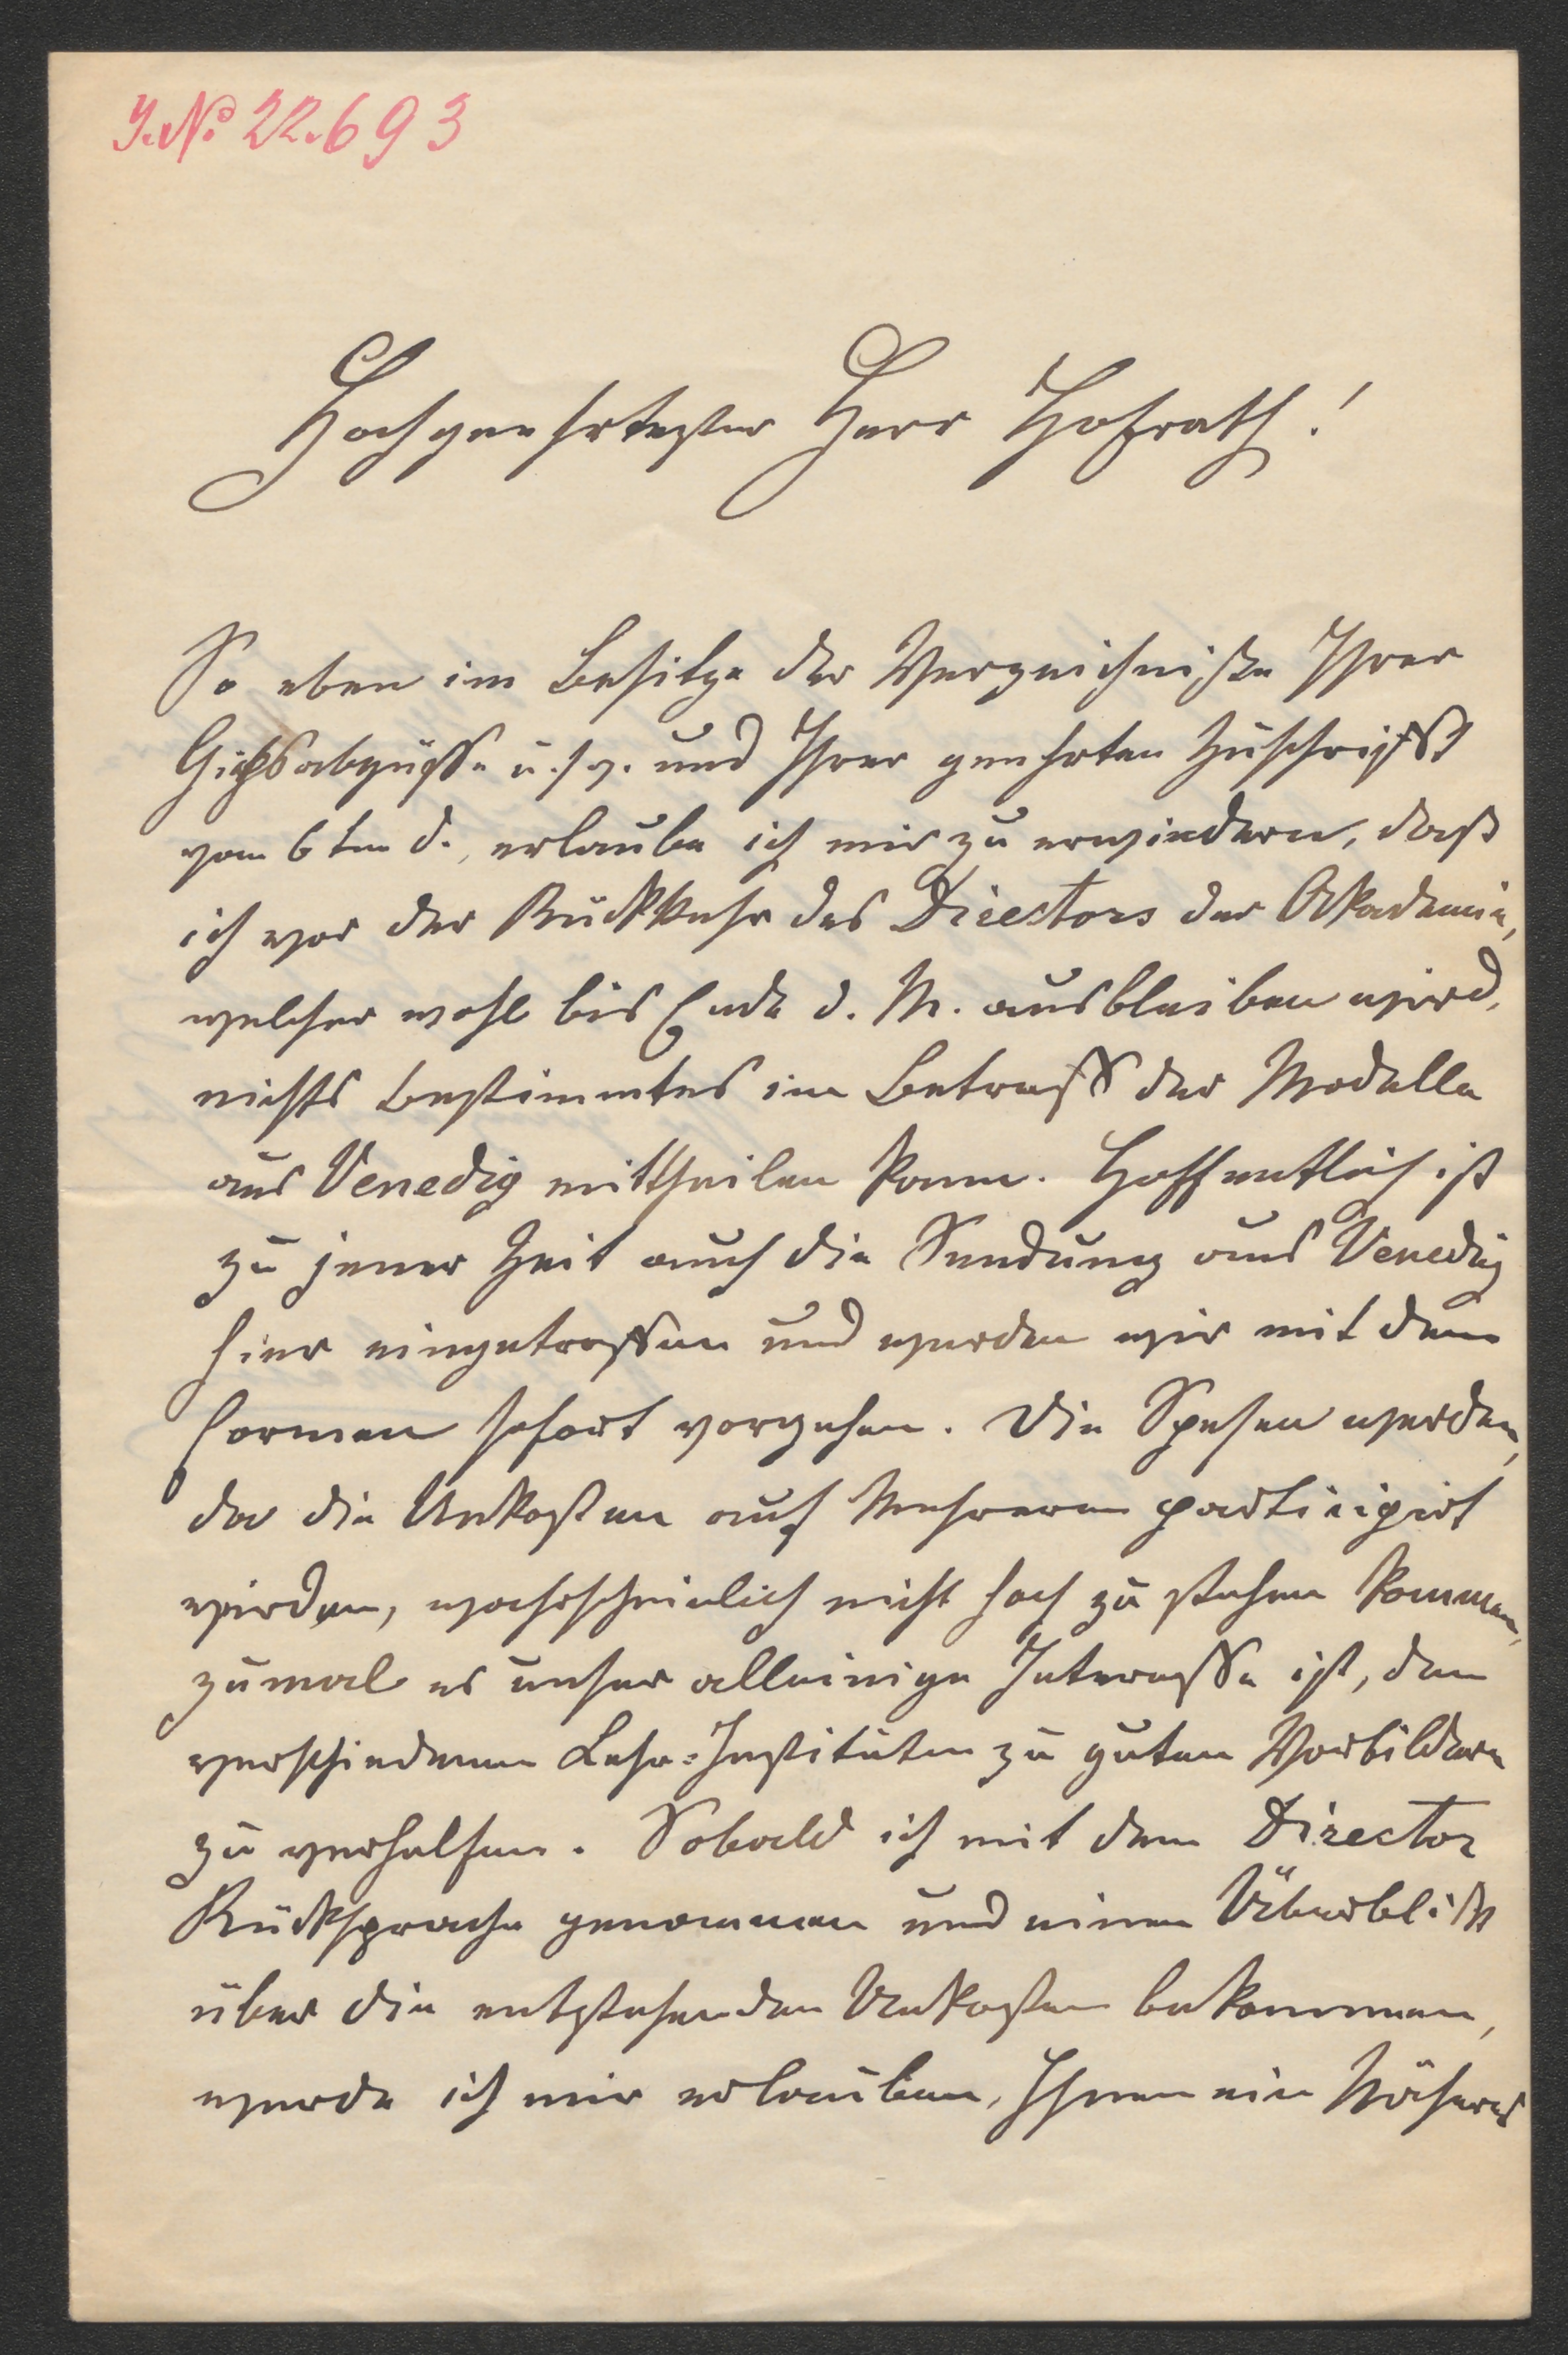 J.No 22.693
Hochgeehrtester Herr Hofrath!
So eben im Besitze der Verzeichniße Ihrer
Gipsabgüsse u.s.w. und Ihrer geehrten Zuschrift
vom 6ten d., erlaube ich mir zu erwiedern, daß
ich vor der Rückkehr des Directors der Akademie,
welcher wohl bis Ende d. M. ausbleiben wird,
nichts bestimmtes im Betreff der Modelle
aus Venedig mittheilen kann. Hoffentlich ist
zu jener Zeit auch die Sendung aus Venedig
hier eingetroffen und werden wir mit dem
Formen sofort vorgehen. Die Spesen werden,
da die Unkosten auf Mehreren participirt
werden, wahrscheinlich nicht hoch zu stehen kommen,
zumal es unser alleinige Interesse ist, den
verschiedenen Lehr-Instituten zu guten Vorbildern
zu verhelfen. Sobald ich mit dem Director
Rücksprache genommen und einen Überblick
über die entstehenden Unkosten bekommen,
werde ich mir erlauben, Ihnen ein Näheres